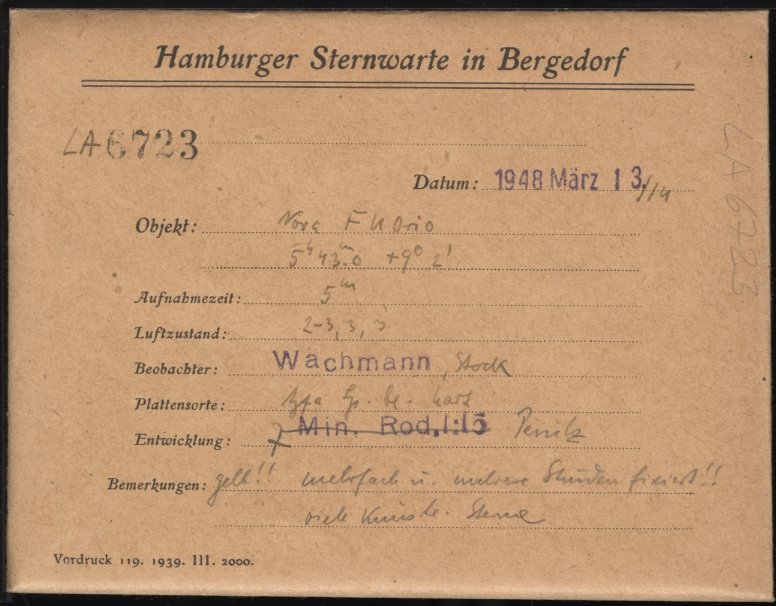 Hamburger Sternwarte in Bergedorf
LA 6723
Datum: 1948 März 13./14
Objekt: Nova FU Orio
5h 43m.0 +9° 2'
Aufnahmezeit: 5m
Luftzustand: 2-3, 3, 3
Beobachter: Wachmann, Stock
Plattensorte: Agfa Sp. bl. hart
Entwicklung: Min. Rod. 1:15
Bemerkungen: gelb!! mehrfach u. mehrere Stunden fixiert!!
viele künstl. Sterne
Vordruck 119. 1939. III. 2000.
LA 6723